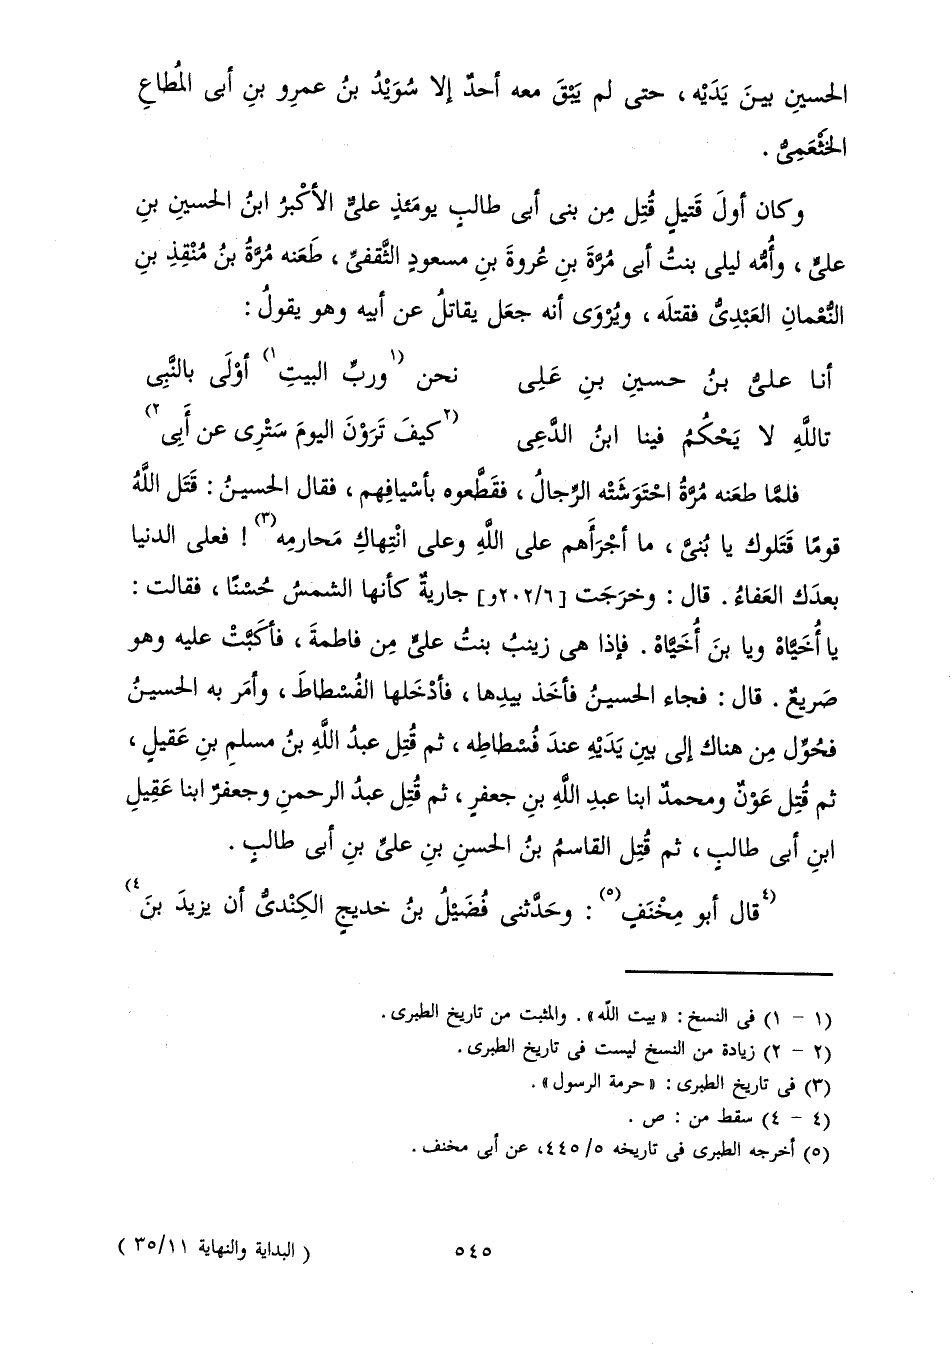 الحسينِ بينَ يَدَيْه ، حتى لم يَبْقَ معه أحدٌ إلا سُوَيْدُ بنُ عمرِو بنِ أبى المُطاعِ
الخَثْعَمِىُّ .
وكان أولَ قَتيلٍ قُتِل مِن بنى أبى طالبٍ يومَئذٍ علىٌّ الأكْبرُ ابنُ الحسينِ بنِ
علىٍّ ، وأُمُّه ليلى بنتُ أبى مُرَّةَ بنِ عُروةَ بنِ مسعودٍ الثَّقفىِّ ، طَعَنه مُرَّةُ بنُ مُنْقِذِ بنِ
النُّعْمانِ العَبْدِىُّ فقتلَه ، ويُرْوَى أنه جعَل يقاتلُ عن أبيه وهو يقولُ :
أنا علىُّ بنُ حسينِ بنِ عَلِى نحن (١وربِّ البيتِ١) أوْلَى بالنَّبِى
تاللَّهِ لا يَحْكُمُ فينا ابنُ الدَّعِى (٢كيفَ تَرَوْنَ اليومَ سَتْرِى عن أَبِى٢)
فلمَّا طعَنه مُرَّةُ احْتوَشَتْه الرِّجالُ ، فقَطَّعوه بأسْيافِهم ، فقال الحسينُ : قَتَل اللَّهُ
قومًا قَتَلوك يا بُنىَّ ، ما أجْرَأَهم على اللَّهِ وعلى انْتِهاكِ مَحارمِه(٣) ! فعلى الدنيا
بعدَك العَفاءُ . قال : وخرَجَت [٢٠٢/٦و] جاريةٌ كأنها الشمسُ حُسْنًا ، فقالت :
يا أُخَيَّاهْ ويا بنَ أُخَيَّاهْ . فإذا هى زينبُ بنتُ علىٍّ مِن فاطمةَ ، فأكَبَّتْ عليه وهو
صَريعٌ . قال : فجاء الحسينُ فأخَذ بيدِها ، فأدْخَلها الفُسْطاطَ ، وأمَر به الحسينُ
فحُوِّل مِن هناك إلى بينِ يَدَيْهِ عندَ فُسْطاطِه ، ثم قُتِل عبدُ اللَّهِ بنُ مسلمِ بنِ عَقيلٍ ،
ثم قُتِل عَوْنٌ ومحمدٌ ابنا عبدِ اللَّهِ بنِ جعفرٍ ، ثم قُتِل عبدُ الرحمنِ وجعفرٌ ابنا عَقِيلِ
ابنِ أبى طالبٍ ، ثم قُتِل القاسمُ بنُ الحسنِ بنِ علىِّ بنِ أبى طالبٍ .
(٤قال أبو مِخْنَفٍ(٥) : وحَدَّثنى فُضَيْلُ بنُ خديجٍ الكِنْدىُّ أن يزيدَ بنَ٤)
(١ - ١) فى النسخ : «بيت اللّه» . والمثبت من تاريخ الطبرى .
(٢ - ٢) زيادة من النسخ ليست فى تاريخ الطبرى .
(٣) فى تاريخ الطبرى : «حرمة الرسول» .
(٤ - ٤) سقط من : ص .
(٥) أخرجه الطبرى فى تاريخه ٤٤٥/٥، عن أبى مخنف .
٥٤٥ ( البداية والنهاية ٣٥/١١ )